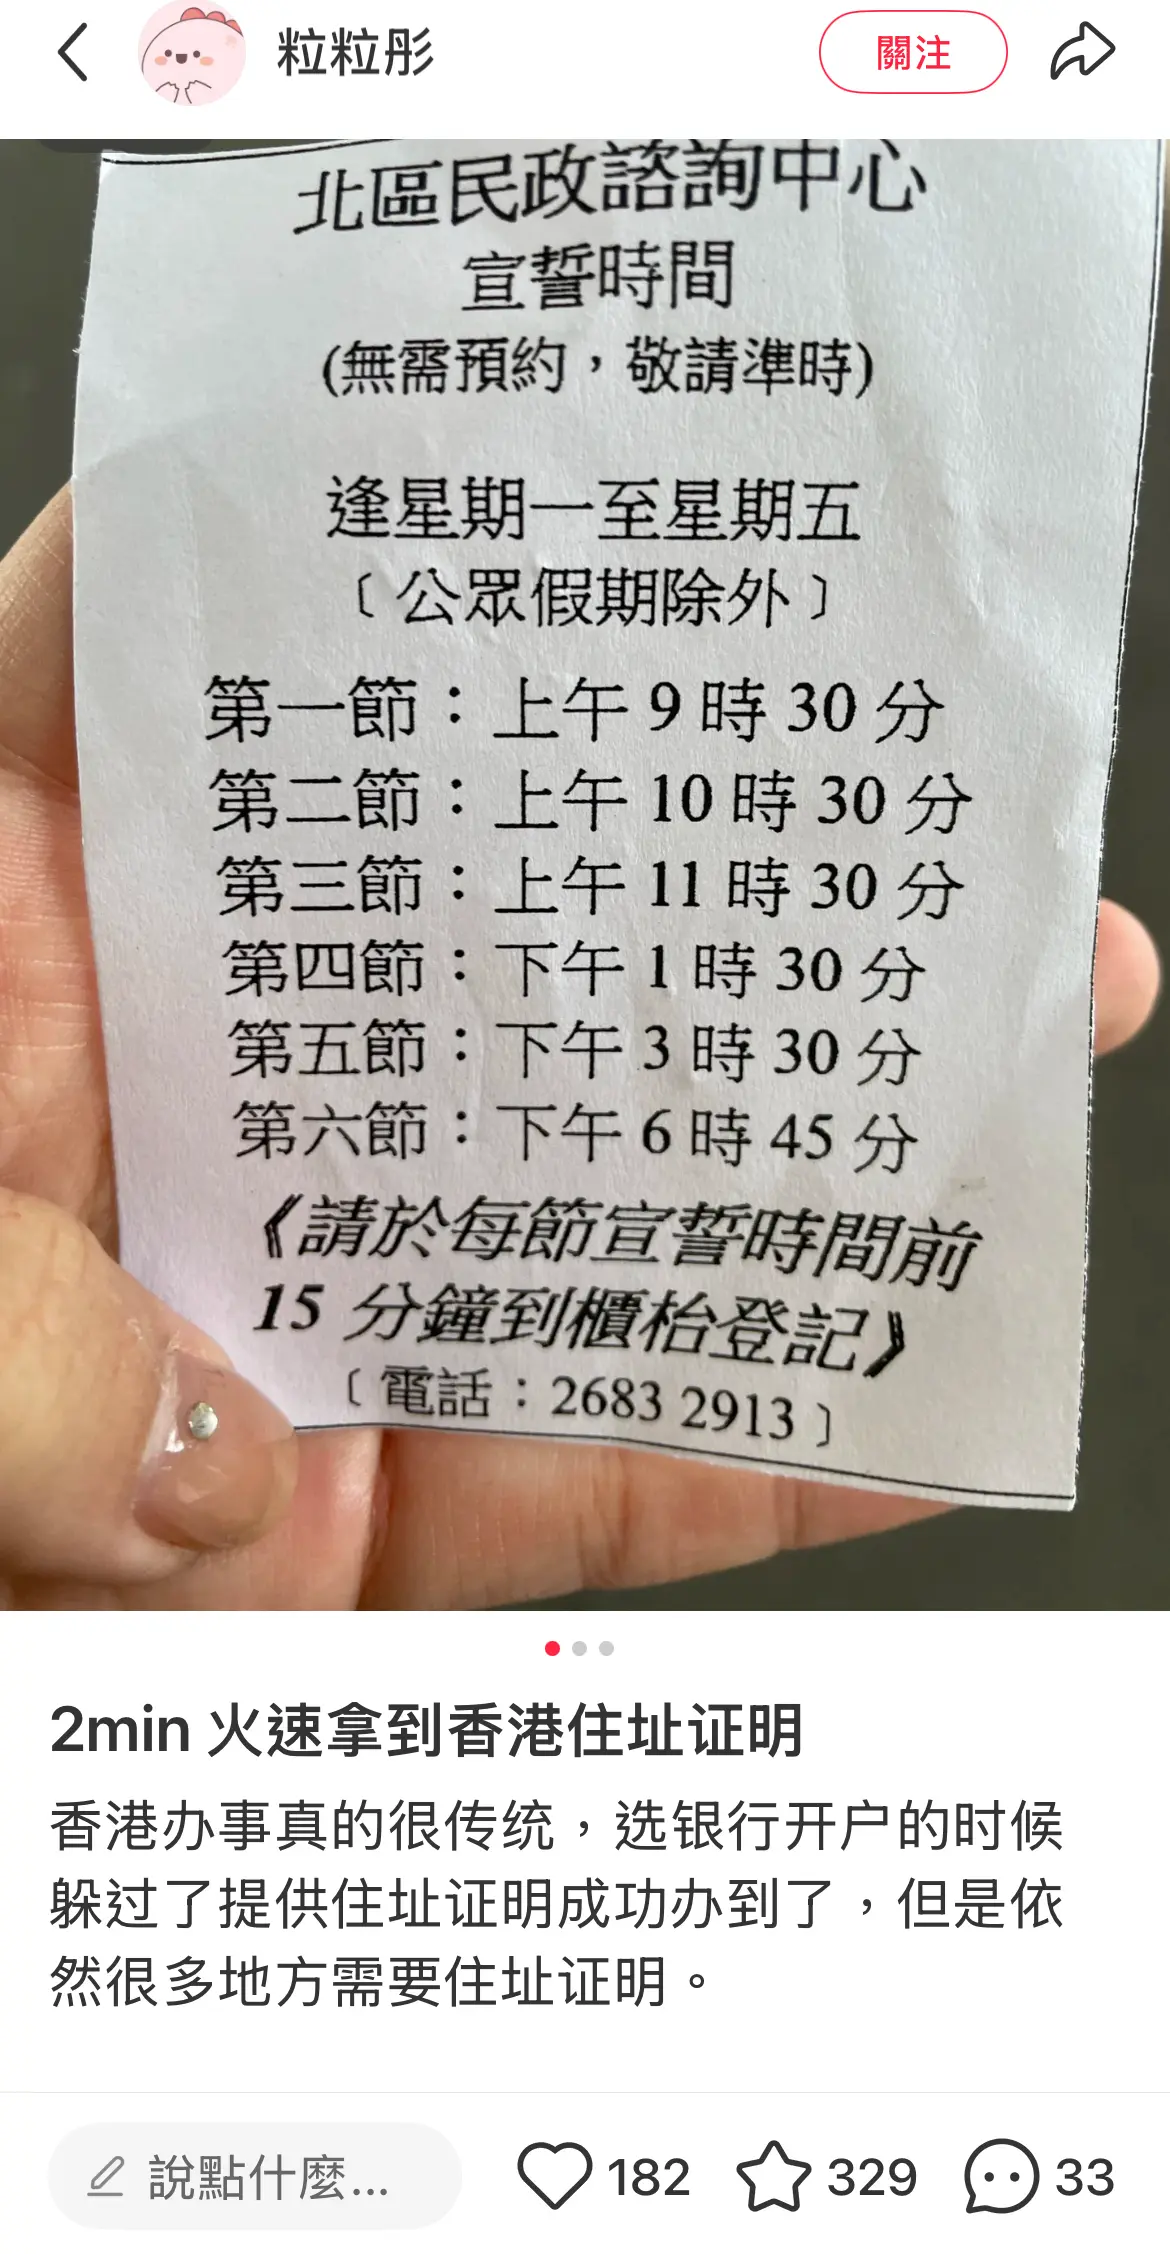 粒粒彤
關注
北區民政諮詢中心
宣誓時間
(無需預約，敬請準時)
逢星期一至星期五
〔公眾假期除外〕
第一節：上午 9 時 30 分
第二節：上午 10 時 30 分
第三節：上午 11 時 30 分
第四節：下午 1 時 30 分
第五節：下午 3 時 30 分
第六節：下午 6 時 45 分
《請於每節宣誓時間前
15 分鐘到櫃枱登記》
〔電話：2683 2913〕
2min 火速拿到香港住址证明
香港办事真的很传统，选银行开户的时候
躲过了提供住址证明成功办到了，但是依
然很多地方需要住址证明。
說點什麼...
182
329
33